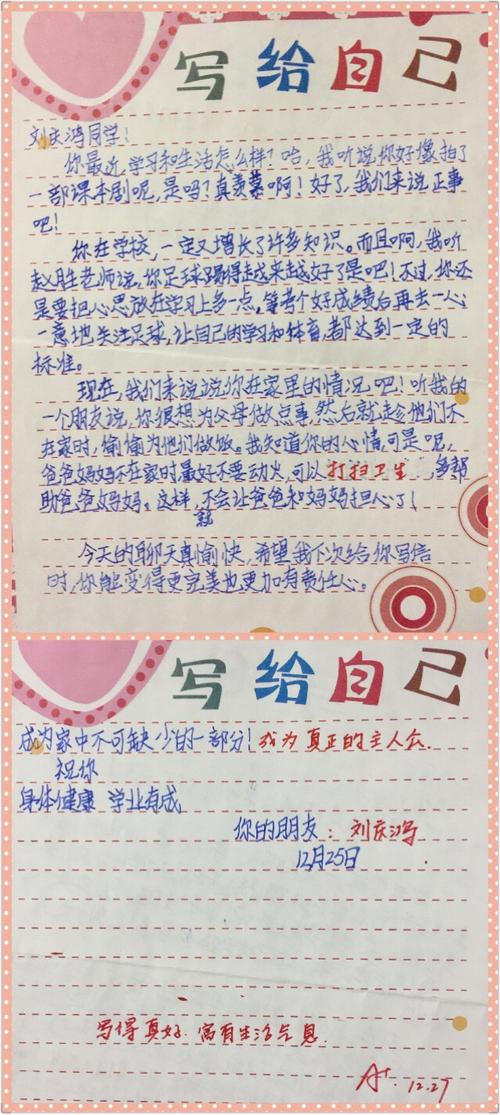 写给自己
刘庆鸿同学！
你最近，学习和生活怎么样？哈，我听说你好像拍了
一部课本剧呢，是吗？真羡慕啊！好了，我们来说正事
吧！
你在学校，一定又增长了许多知识。而且啊，我听
赵胜老师说，你足球踢得越来越好了是吧！不过，你还
是要把心思放在学习上多一点，等考个好成绩后再去一心
一意地关注足球，让自己的学习和体育，都达到一定的
标准。
现在，我们来说说你在家里的情况吧！听我的
一个朋友说，你很想为父母做点事，然后就趁他们不
在家时，偷偷为他们做饭。我知道你的心情，可是呢，
爸爸妈妈不在家时，最好不要动火，可以打扫卫生，多帮
助爸爸妈妈。这样，不会让爸爸和妈妈担心了！
就
今天的聊天真愉快，希望我下次给你写信
时，你能变得更完美也更加有责任心。
写给自己
成为家中不可缺少的一部分！成为真正的主人公.
祝你
身体健康 学业有成
你的朋友：刘庆鸿
12月25日
写得真好.富有生活气息.
A+. 12.27